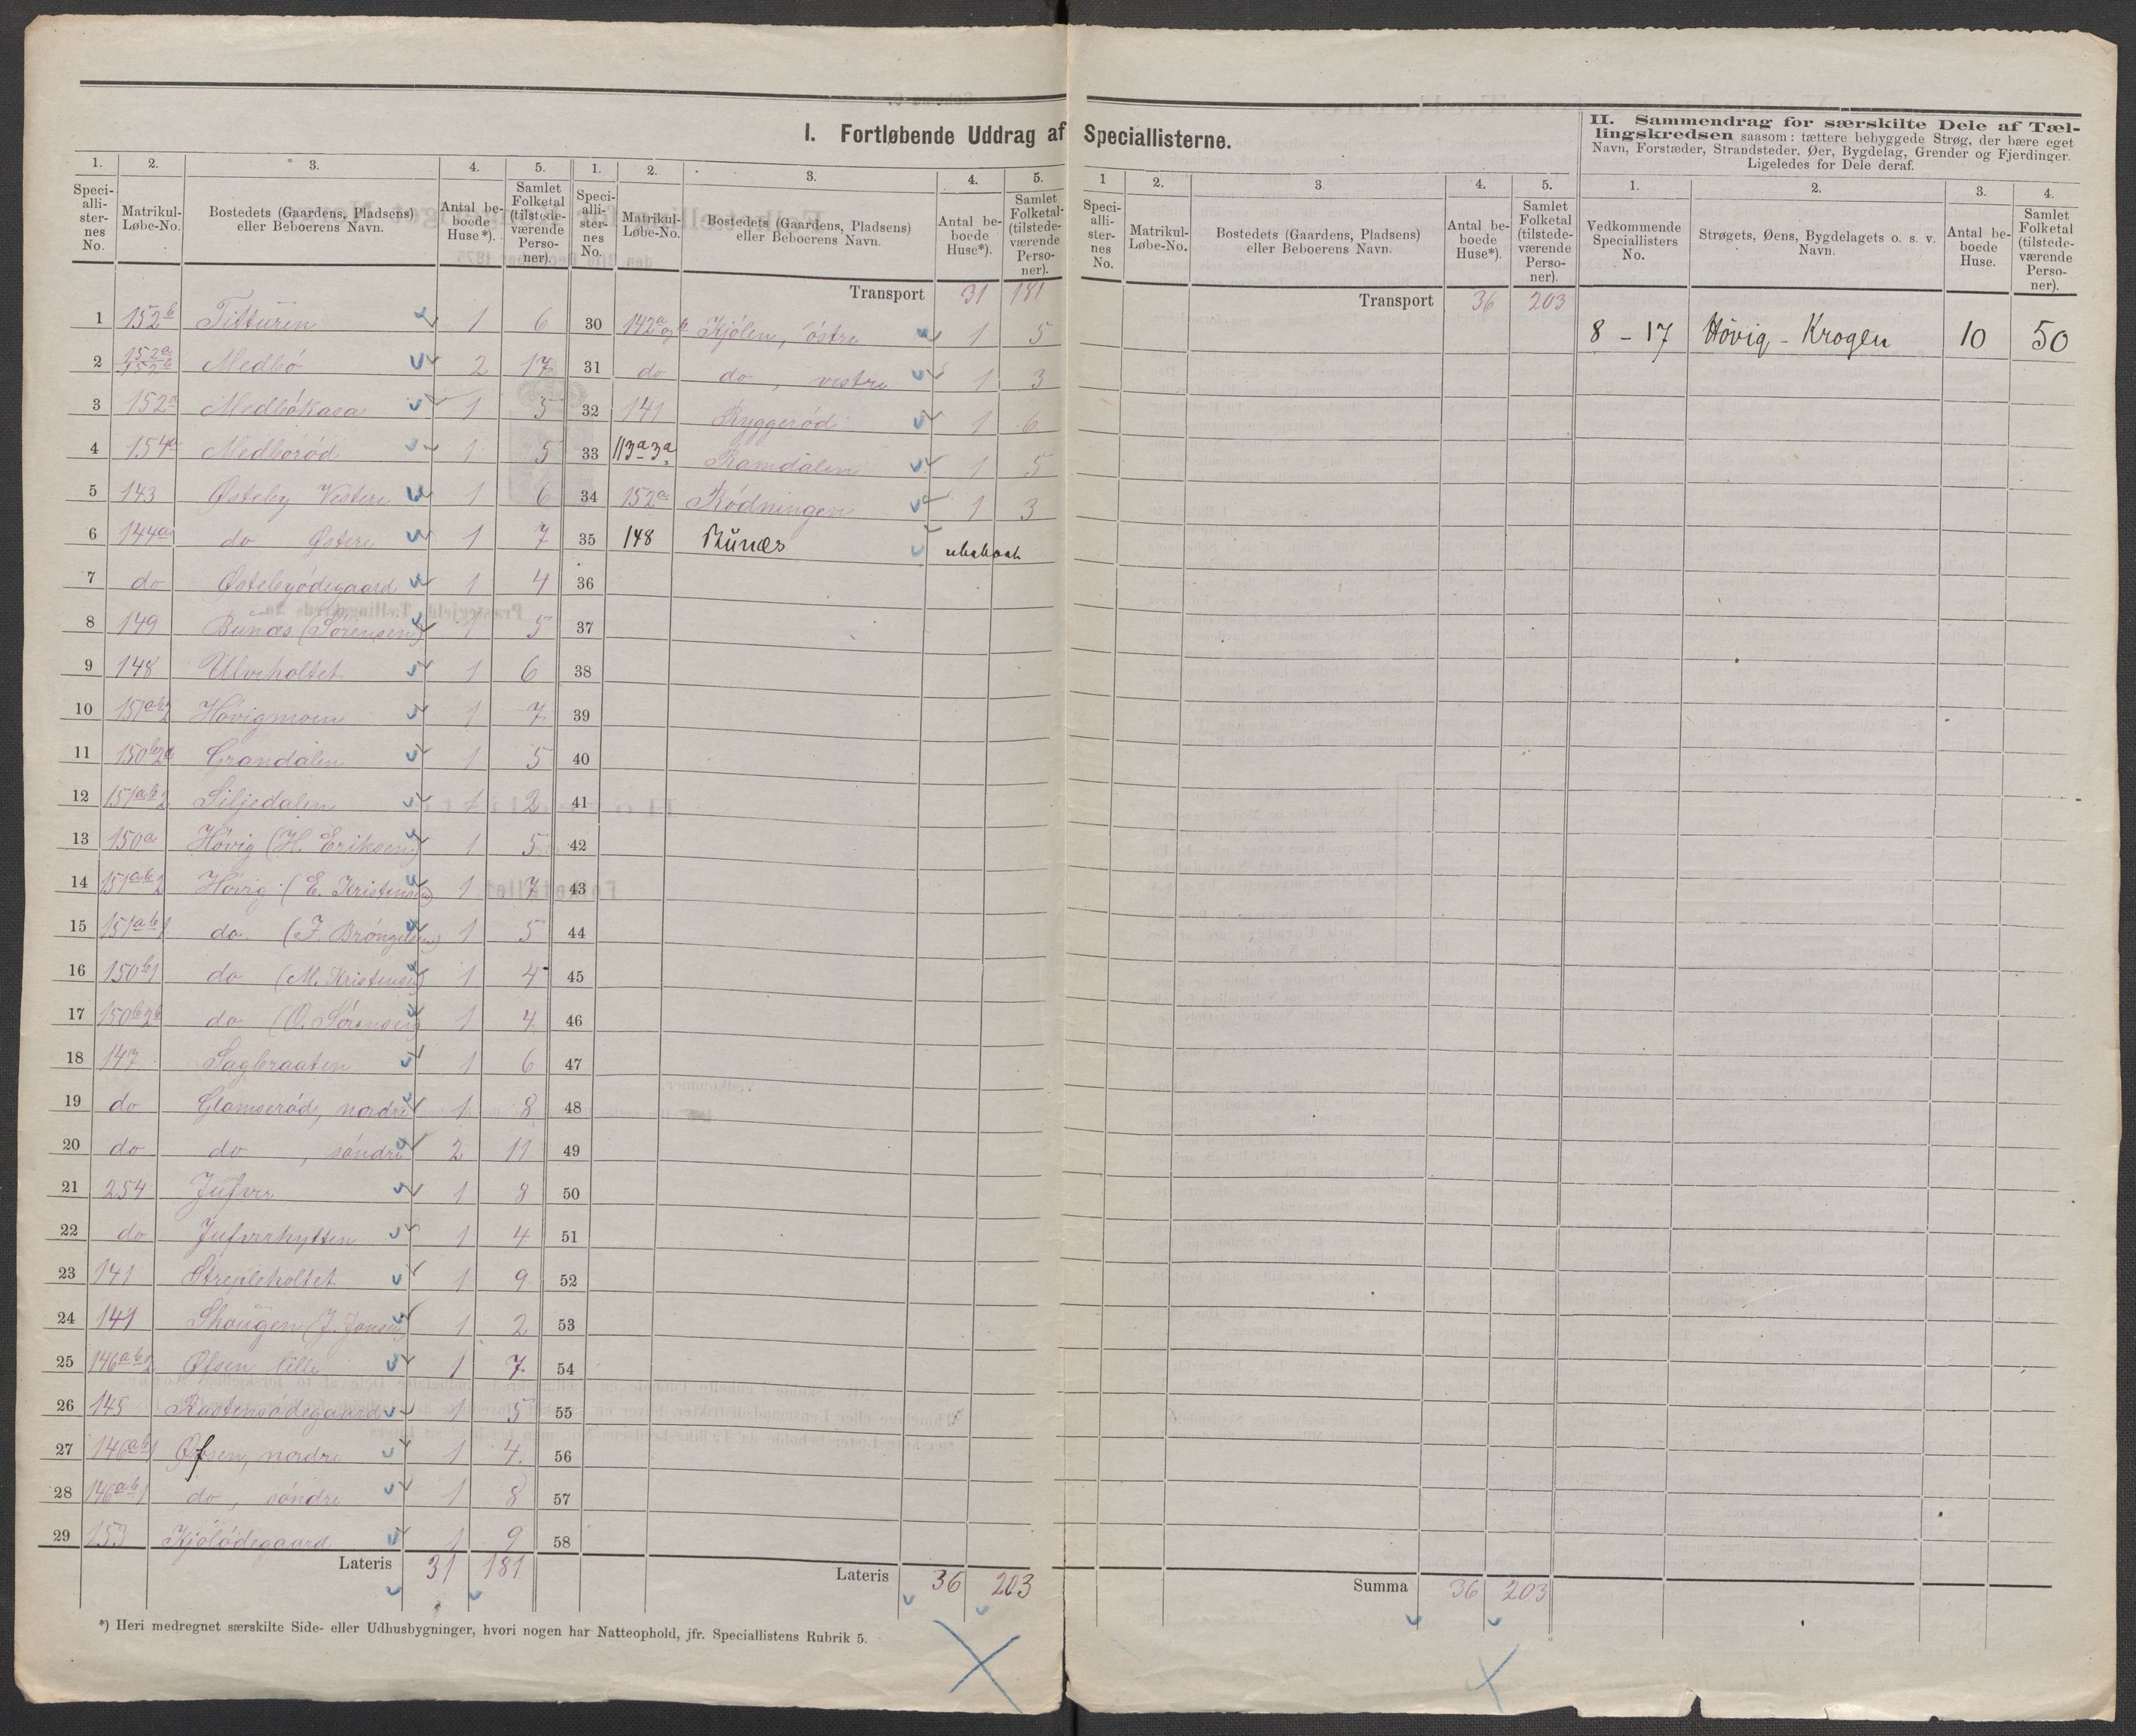 I. Fortløbende Uddrag af Speciallisterne.
1. 2. 3. 4. 5.
Speciallisternes No. Matrikul-Løbe-No. Bostedets (Gaardens, Pladsens) eller Beboerens Navn. Antal beboede Huse*). Samlet Folketal (tilstedeværende Personer).
1 152b Titturin 1 6
2 152a 152b Medbö 2 17
3 152a Medbökasa 1 5
4 154a Medböröd 1 5
5 143 Østeby Vestere 1 6
6 144a do Østere 1 7
7 do Østebyödegaard 1 4
8 149 Bunæs (Sörensen) 1 5
9 148 Ulveholtet 1 6
10 151ab2 Hövigmoen 1 7
11 150b2a Grandalen 1 5
12 151ab2 Siljedalen 1 2
13 150a Hövig (H. Eriksen) 1 5
14 151ab2 Hövig (E. Kristensen) 1 7
15 151ab1 do (J. Bröngelsen) 1 5
16 150b1 do (M. Kristensen) 1 4
17 150b2b do (O. Sörensen) 1 4
18 147 Sagbraaten 1 6
19 do Glomseröd, nordre 1 8
20 do do, söndre 2 11
21 254 Jufver 1 8
22 do Jufverhytten 1 4
23 141 Strepleholtet 1 9
24 141 Skougen (J. Jonsen) 1 2
25 146ab2 Øfsen lille 1 7
26 145 Rastensödegaard 1 5
27 146ab1 Øfsen, nordre 1 4
28 146ab1 do, söndre 1 8
29 153 Kjölödegaard 1 9
Lateris 31 181
1. 2. 3. 4. 5.
Speciallisternes No. Matrikul-Løbe-No. Bostedets (Gaardens, Pladsens) eller Beboerens Navn. Antal beboede Huse*). Samlet Folketal (tilstedeværende Personer).
Transport 31 181
30 142a og b Kjölen, östre 1 5
31 do do, vestre 1 3
32 141 Ryggeröd 1 6
33 113a3a Ramdalen 1 5
34 152a Rödningen 1 3
35 148 Bunæs ubeboet
36
37
38
39
40
41
42
43
44
45
46
47
48
49
50
51
52
53
54
55
56
57
58
Lateris 36 203
*) Heri medregnet særskilte Side- eller Udhusbygninger, hvori nogen har Natteophold, jfr. Speciallistens Rubrik 5.
1 2. 3. 4. 5.
Speciallisternes No. Matrikul-Løbe-No. Bostedets (Gaardens, Pladsens) eller Beboerens Navn. Antal beboede Huse*). Samlet Folketal (tilstedeværende Personer).
Transport 36 203
Summa 36 203
II. Sammendrag for særskilte Dele af Tæl-
lingskredsen saasom: tættere bebyggede Strøg, der bære eget
Navn, Forstæder, Strandsteder, Øer, Bygdelag, Grender og Fjerdinger.
Ligeledes for Dele deraf.
1. 2. 3. 4.
Vedkommende Speciallisters No. Strøgets, Øens, Bygdelagets o. s. v. Navn. Antal beboede Huse. Samlet Folketal (tilstedeværende Personer).
8 - 17 Hövig - Krogen 10 50